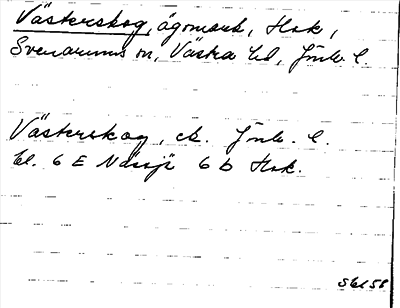 Västerskog, ägomark, Hok,
Svenarums sn, Västra hd, Jönk. l.
Västerskog, ek. Jönk. l.
bl. 6 E Nässjö 6 b Hok.
Sbl 58